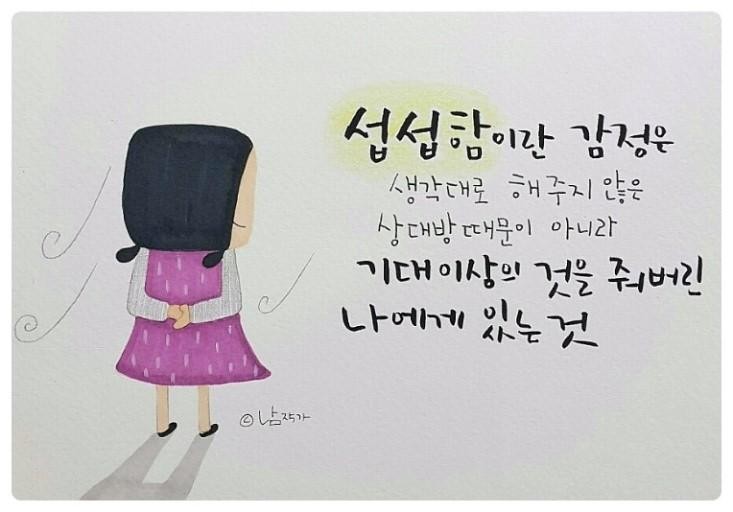 섭섭함이란 감정은
생각대로 해주지 않은
상대방 때문이 아니라
기대이상의 것을 줘버린
나에게 있는 것
ⓒ남작가